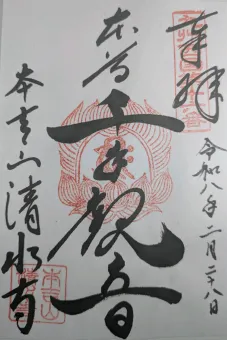 奉拝
令和八年二月二十八日
本尊
千手観音
本吉山清水寺